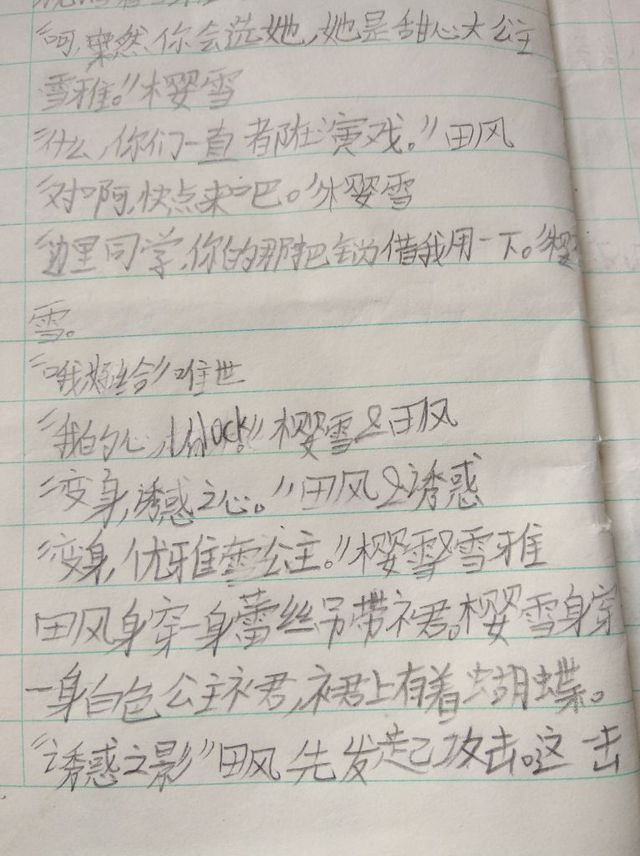 "呵,果然,你会选她,她是甜心大公主
雪雅。"樱雪
"什么,你们一直都在演戏。"田风
"对啊,快点来吧。"樱雪
"边里同学,你的那把锁借我用一下。"樱
雪。
"哦,好,给"唯世
"我的心,unlock!"樱雪&田风
"变身,诱惑之心。"田风&诱惑
"变身,优雅雪公主。"樱雪&雪雅
田风身穿一身蕾丝吊带裙。樱雪身穿
一身白色公主裙,裙上有着蝴蝶。
"诱惑之影"田风先发起攻击。这一击